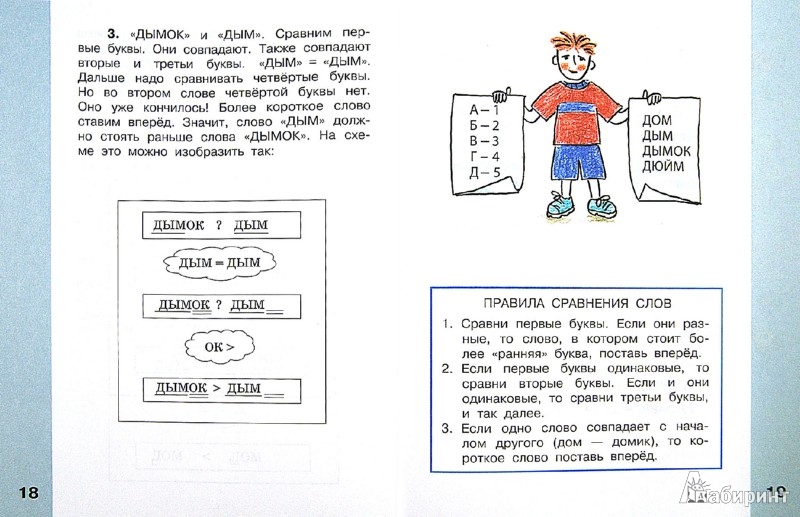 3. «ДЫМОК» и «ДЫМ». Сравним пер-
вые буквы. Они совпадают. Также совпадают
вторые и третьи буквы. «ДЫМ» = «ДЫМ».
Дальше надо сравнивать четвёртые буквы.
Но во втором слове четвёртой буквы нет.
Оно уже кончилось! Более короткое слово
ставим вперёд. Значит, слово «ДЫМ» долж-
но стоять раньше слова «ДЫМОК». На схе-
ме это можно изобразить так:
ДЫМОК ? ДЫМ
ДЫМ = ДЫМ
ДЫМОК ? ДЫМ __
ОК >
ДЫМОК > ДЫМ __
18
А – 1
Б – 2
В – 3
Г – 4
Д – 5
ДОМ
ДЫМ
ДЫМОК
ДЮЙМ
ПРАВИЛА СРАВНЕНИЯ СЛОВ
1. Сравни первые буквы. Если они раз-
ные, то слово, в котором стоит бо-
лее «ранняя» буква, поставь вперёд.
2. Если первые буквы одинаковые, то
сравни вторые буквы. Если и они
одинаковые, то сравни третьи буквы,
и так далее.
3. Если одно слово совпадает с нача-
лом другого (дом — домик), то ко-
роткое слово поставь вперёд.
19
Лабиринт